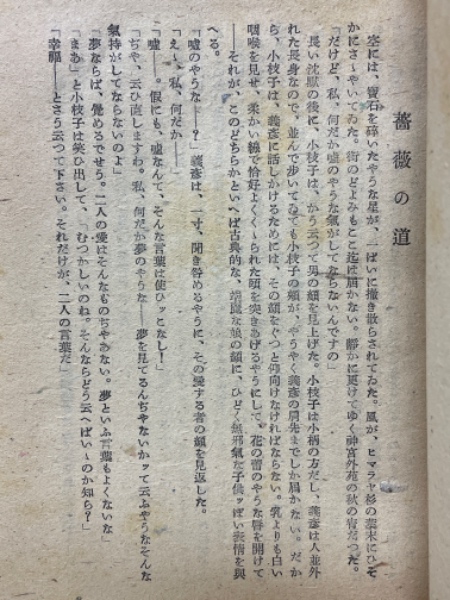 薔薇の道
空には、寶石を碎いたやうな星が、一ぱいに撒き散らされてゐた。風が、ヒマラヤ杉の葉末にひそ
かにさゝやいてゐた。街のどよみもここ迄は屆かない。靜かに更けてゆく神宮外苑の秋の宵だつた。
「だけど、私、何だか嘘のやうな氣がしてならないんですの」
長い沈默の後に、小枝子は、かう云つて男の顏を見上げた。小枝子は小柄の方だし、義彦は人並外
れた長身なので、並んで歩いてゐても小枝子の頰が、やうやく義彦の肩先までしか屆かない。だか
ら、小枝子は、義彦に話しかけるためには、その顏をぐつと仰向けなければならない。乳よりも白い
咽喉を見せ、柔かい線で恰好よくくゝられた頤を突きあげるやうにして、花の蕾のやうな唇を開けて
――それが、このどちらかといへば古典的な、端麗な娘の顏に、ひどく無邪氣な子供ッぽい表情を與
へる。
「嘘のやうな――？」義彦は、一寸、聞き咎めるやうに、その愛する者の顏を見返した。
「えゝ、私、何だか――」
「嘘――。假にも、嘘なんて、そんな言葉は使ひッこなし！」
「ぢや、云ひ直しますわ。私、何だか夢のやうな――夢を見てるんぢやないかッて云ふやうなそんな
氣持がしてならないのよ」
「夢ならば、覺めるでせう。二人の愛はそんなものぢやあない。夢といふ言葉もよくないな」
「まあ」と小枝子は笑ひ出して、「むつかしいのね。そんならどう云へばいゝのか知ら？」
「幸福――とさう云つて下さい。それだけが、二人の言葉だ」